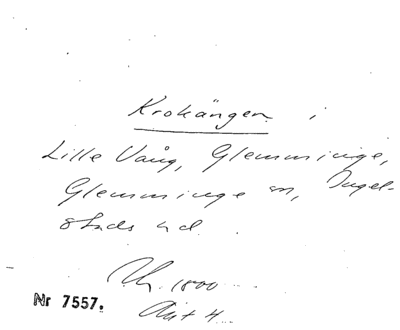 Krokängen i
Lille Vång, Glemminge,
Glemminge sn, Ingel-
stads hd.
1800
Akt 4
Nr 7557.